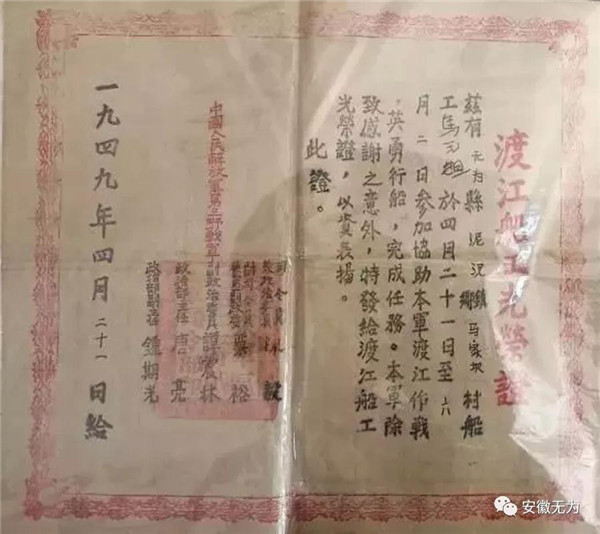 渡江船工光榮證
兹有 无为縣 泥汊鎮鄉 马家坝 村船
工馬於四月二十一日至 六
月二日参加協助本軍渡江作戰
，英勇行船，完成任務。本軍除
致感謝之意外，特發給渡江船工
光榮證，以資表揚。
此證。
陳毅
粟裕
中國人民解放軍第三野戰軍副政治委員 譚震林
政治部主任 唐亮
政治部副主任 鍾期光
一九四九年四月 二十一 日給
安徽无为